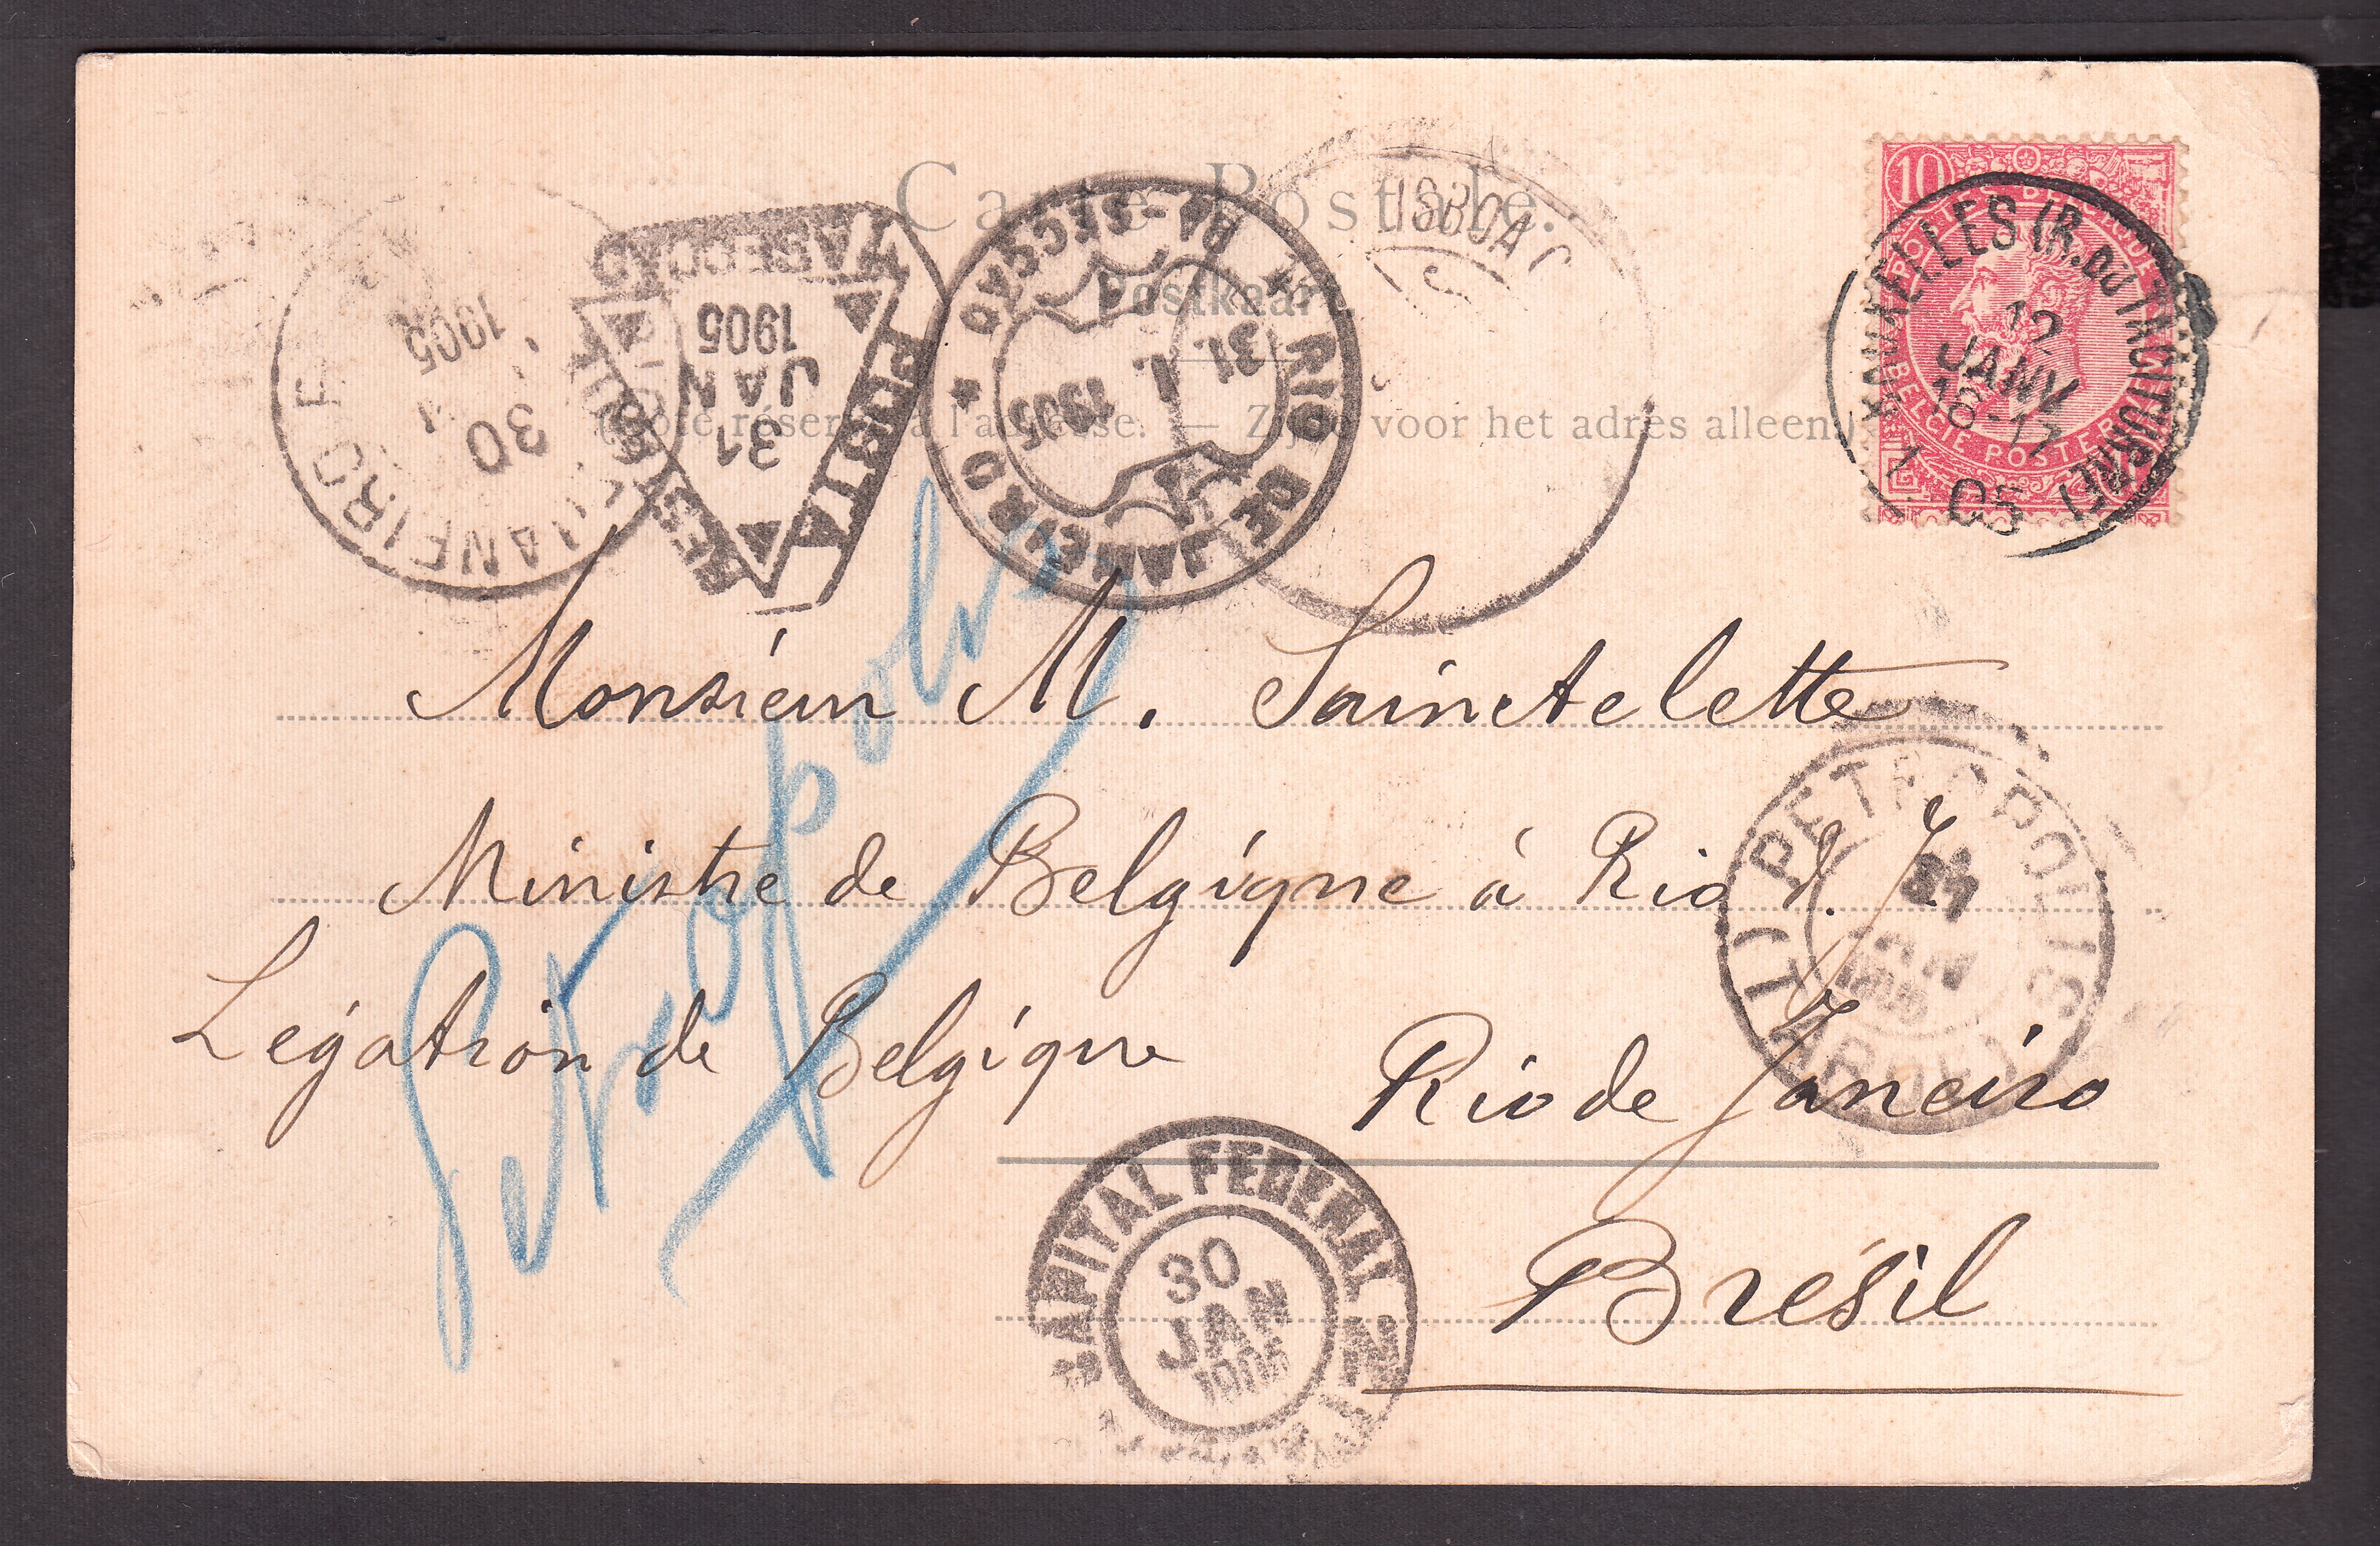 Carte Postale.
Postkaart.
(Côté réservé à l'adresse. — Zijde voor het adres alleen.)
10
POSTES BELGIQUE
BELGIË POSTERIJEN
BRUXELLES (R. DU TACITURNE)
12
JANV
16-17
05
LISBOA
RIO DE JANEIRO
30
1905
POSTA
31
JAN
1905
RIO DE JANEIRO
4ª SECÇÃO
31 1
1905
Monsieur M. Sainctelette
Ministre de Belgique à Rio d. J.
Légation de Belgique
Rio de Janeiro
Brésil
Petropolis
PETROPOLIS
CAPITAL FEDERAL
30
JAN
1905